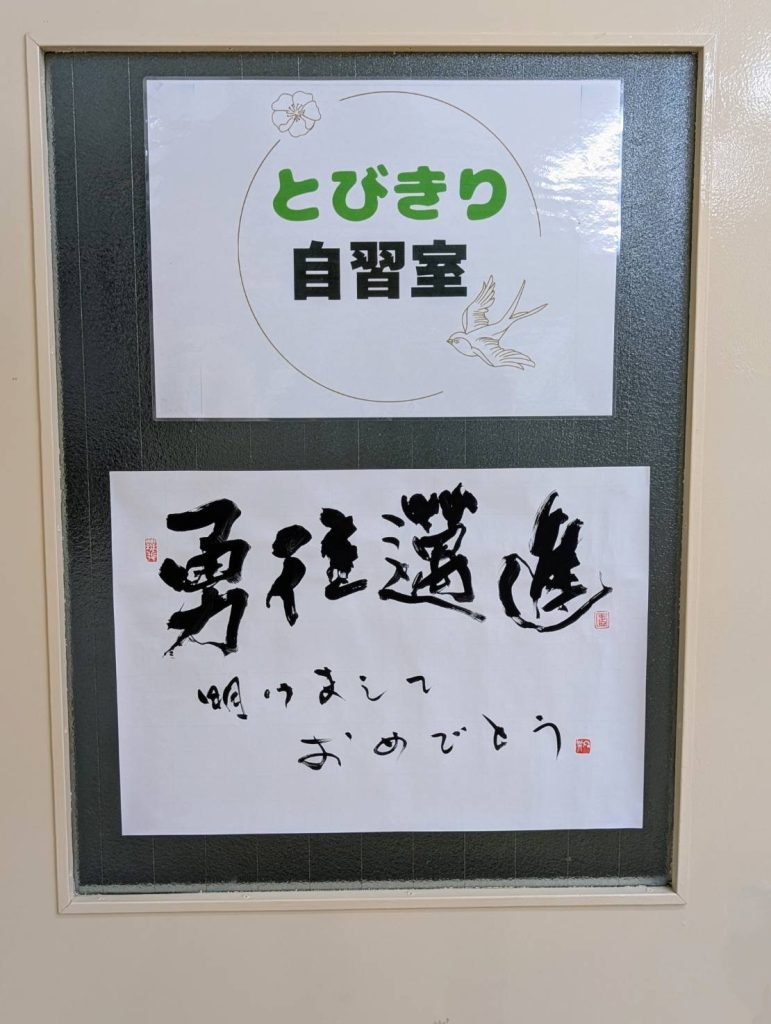 とびきり
自習室
勇往邁進
明けまして
おめでとう